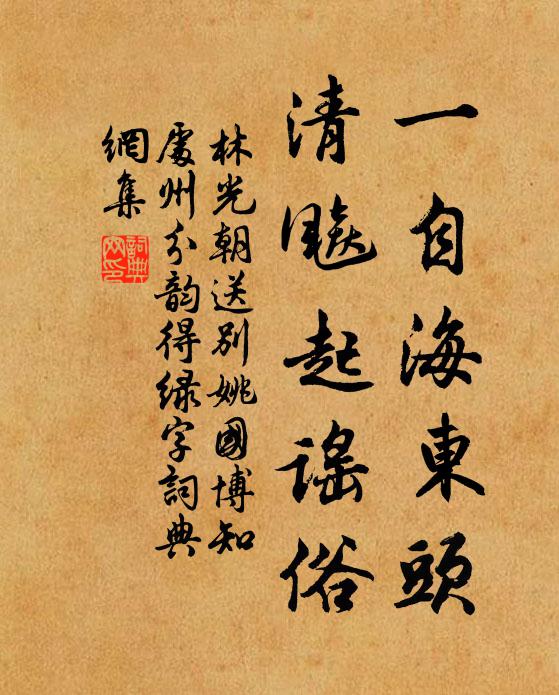 一自海東頭
清飈起謠俗
林光朝送别姚國博知
處州分韵得緑字詞典
網集
詞典
网印